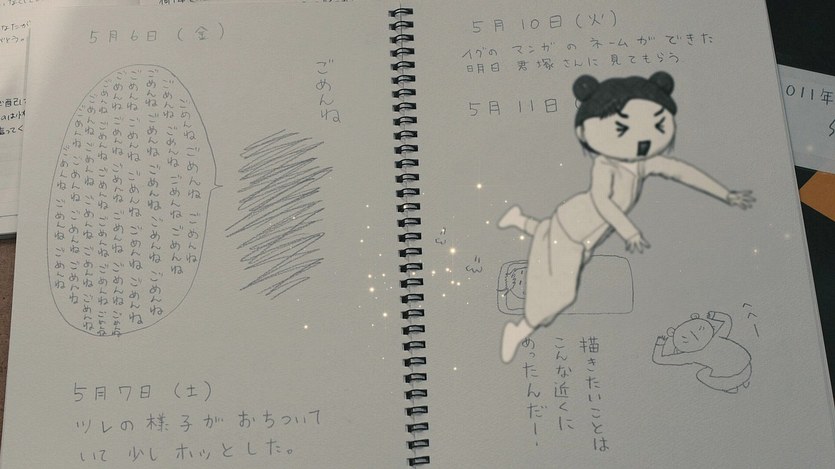 5月6日（金）
ごめんね
ごめんねごめんねごめんね
ごめんねごめんねごめんねごめんね
ごめんねごめんねごめんねごめんねごめんね
ごめんねごめんねごめんねごめんねごめんね
ごめんねごめんねごめんねごめんねごめんね
ごめんねごめんねごめんねごめんねごめんね
ごめんねごめんねごめんねごめんね
ごめんねごめんねごめんね
5月7日（土）
ツレの様子がおちついて
いて少しホッとした。
5月10日（火）
イグのマンガのネームができた
明日君塚さんに見てもらう
5月11日
描きたいことは
こんな近くに
あったんだー！
へへー
011年